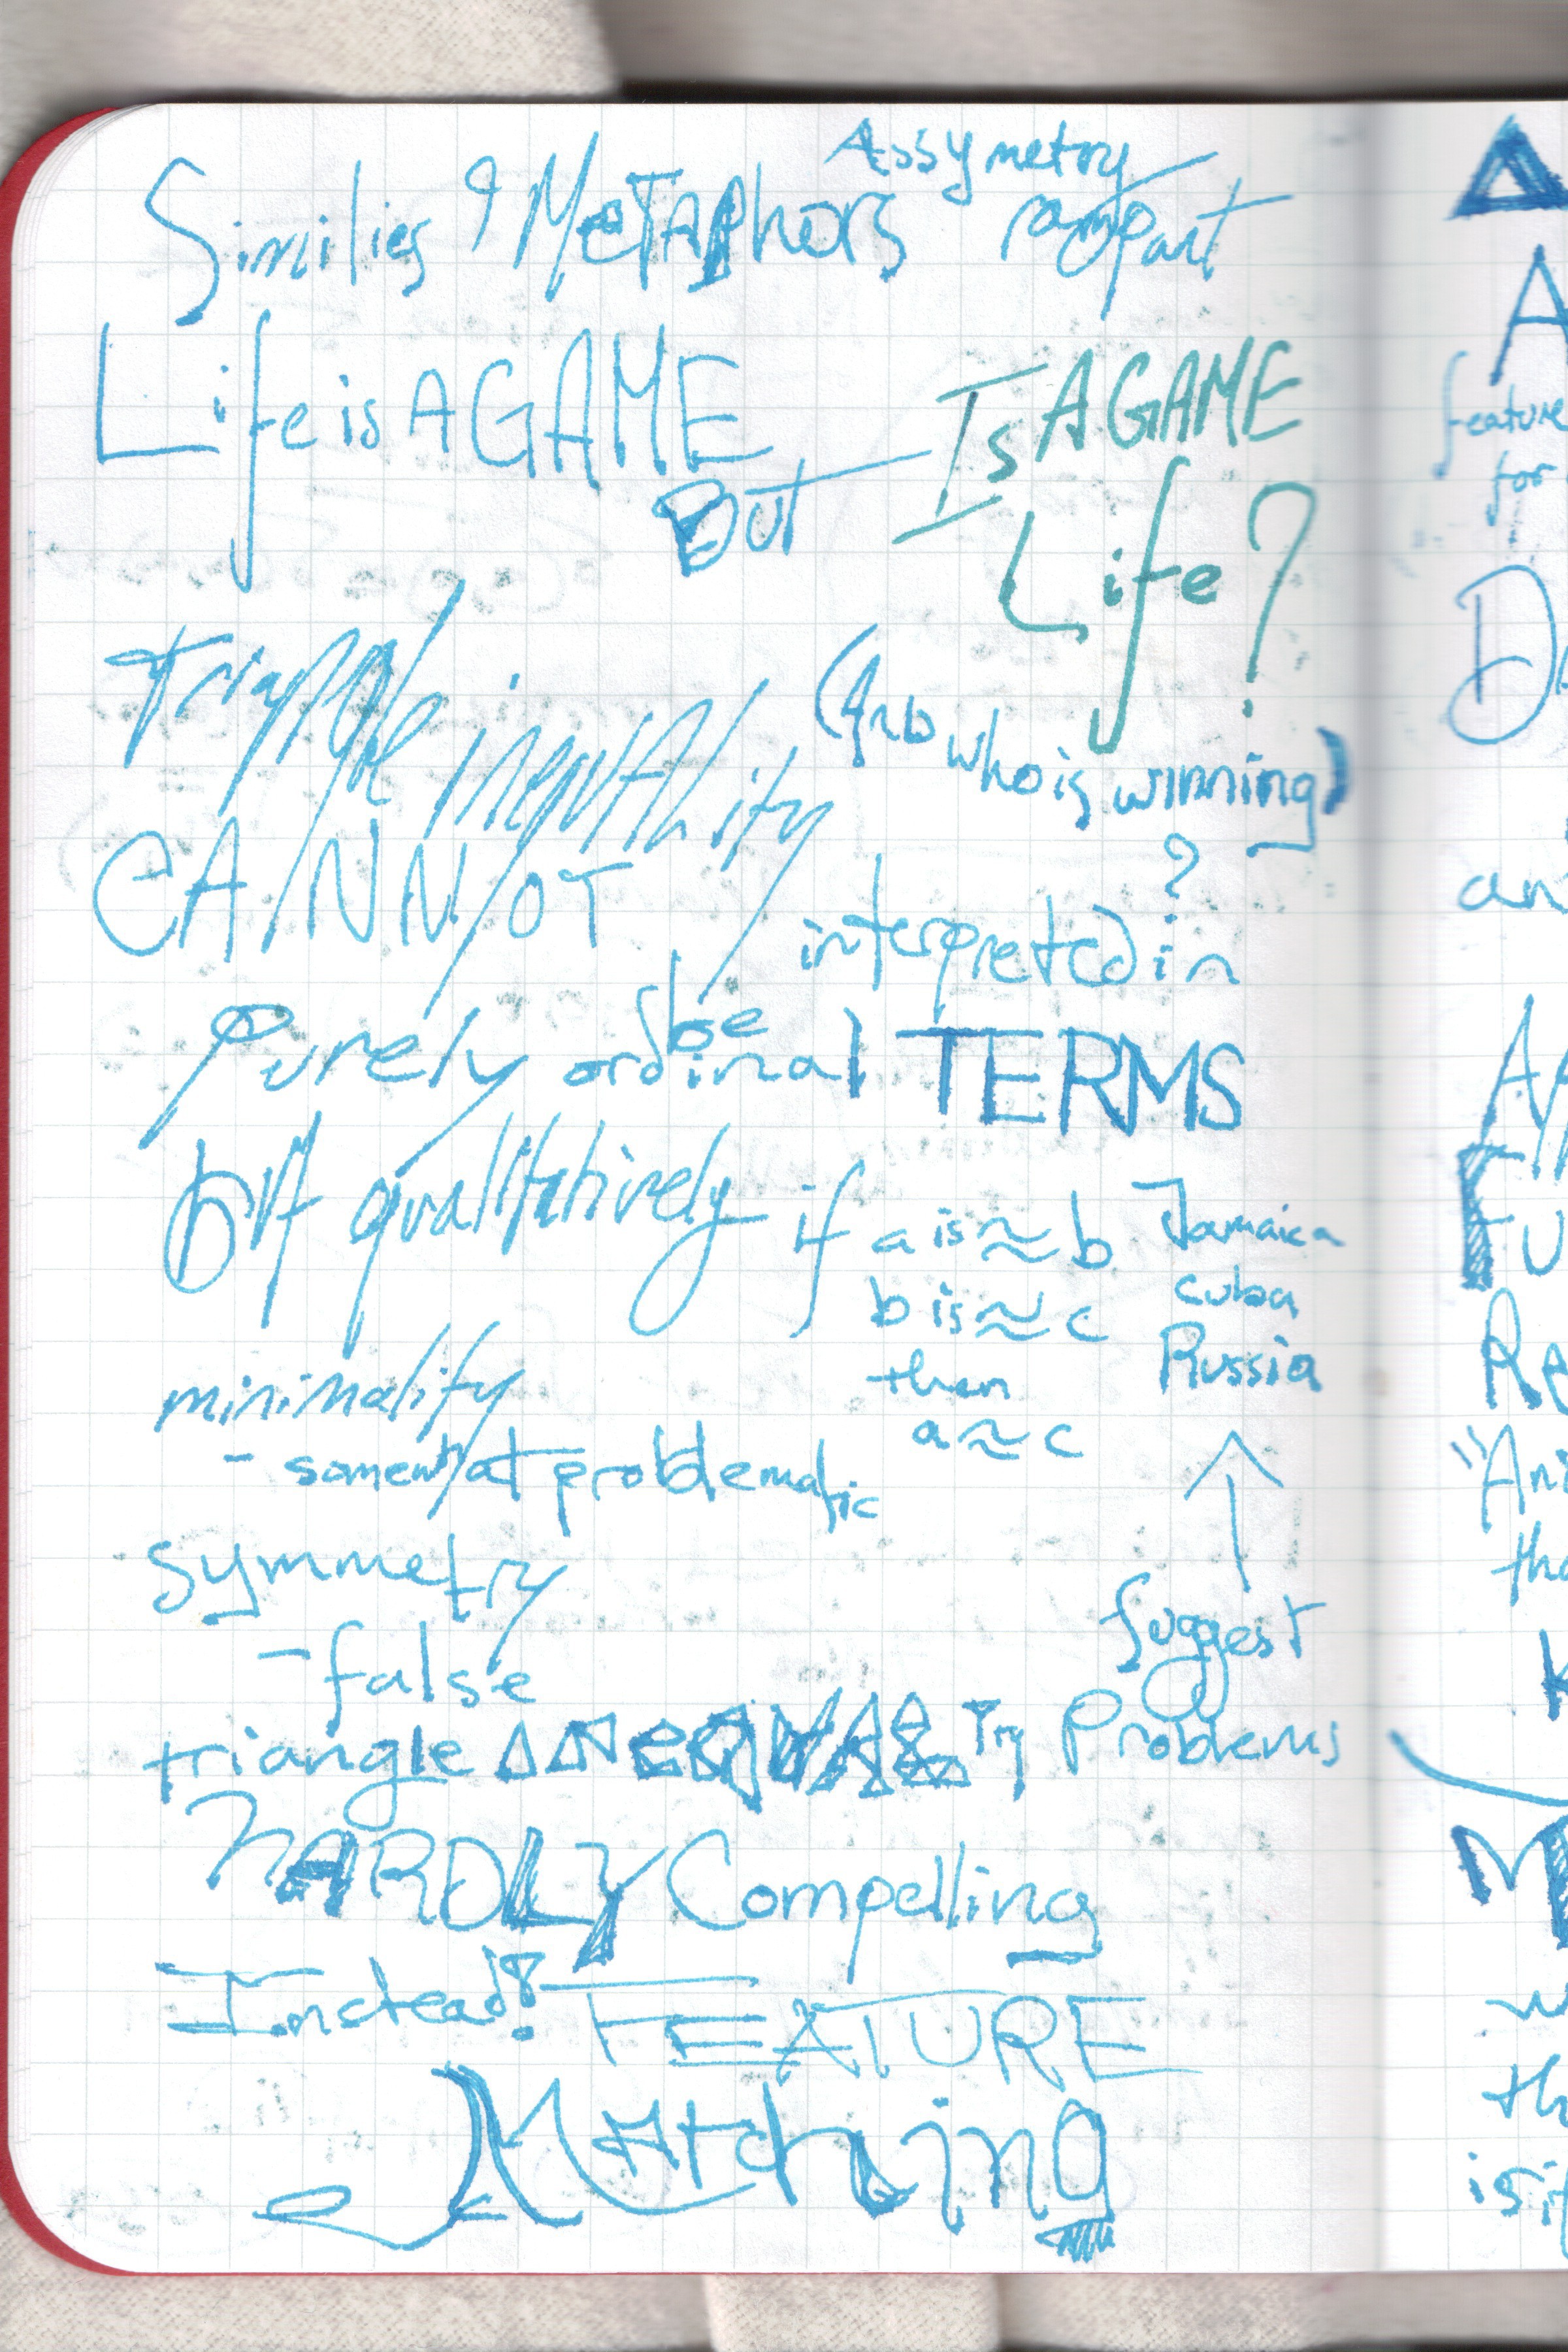 Assymetry
Similies & MeTAPhors rampart
Life is A GAME
But
Is A GAME
Life?
(And who is winning)
?
Triangle inequality
CANNOT
be
interpreted in
Purely ordinal TERMS
but qualitatively if a is ≈ b Jamaica
b is ≈ c cuba
then Russia
a ≈ c
↑
minimality
- somewhat problematic
symmetry
- false
suggest
Problems
triangle
hARDLY Compelling
Instead! FEATURE
MAtching
Δ
A
feature
for
an
FU
"Ani
is it